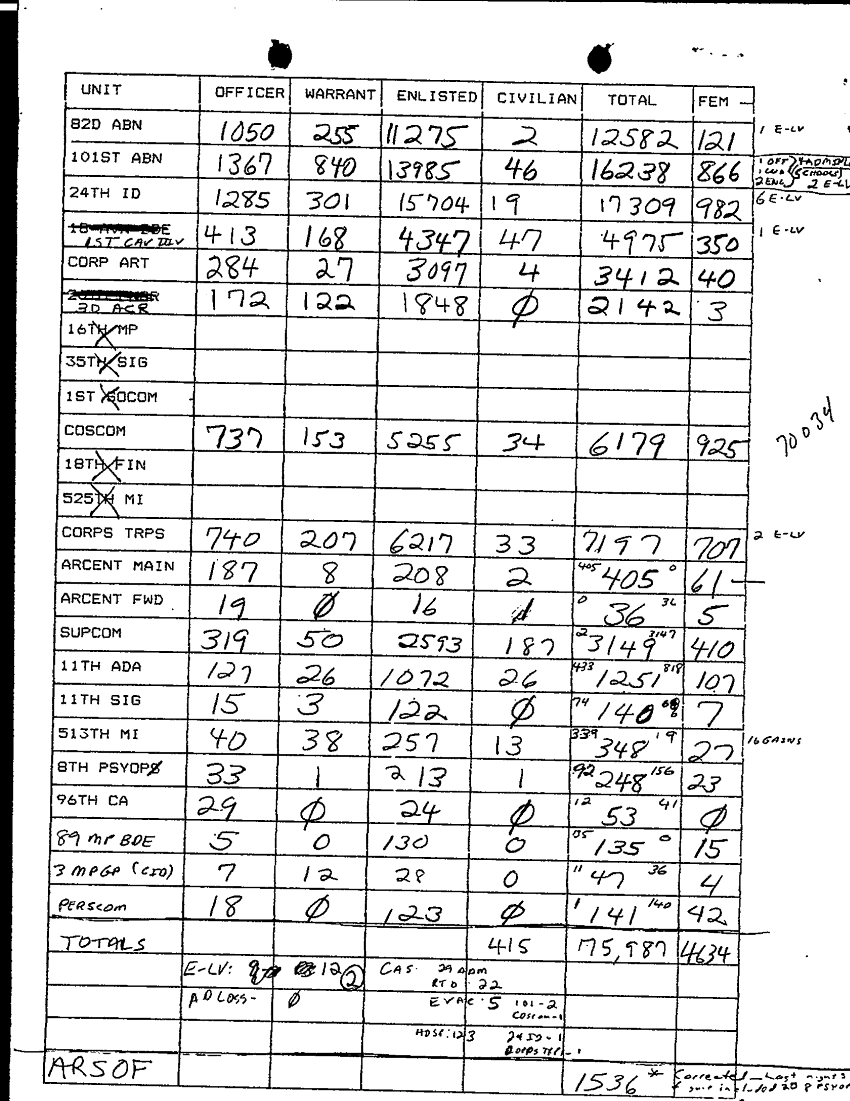 UNIT OFFICER WARRANT ENLISTED CIVILIAN TOTAL FEM
82D ABN 1050 255 11275 2 12582 121 1 E-LV
101ST ABN 1367 840 13985 46 16238 866 1 OFF 2 ENL 2 E-LV
24TH ID 1285 301 15704 19 17309 982 6 E-LV
1ST CAV DIV 413 168 4347 47 4975 350 1 E-LV
CORP ART 284 27 3097 4 3412 40
3D ACR 172 122 1848 Ø 2142 3
16TH MP
35TH SIG
1ST SOCOM
COSCOM 737 153 5255 34 6179 925 70034
18TH FIN
525TH MI
CORPS TRPS 740 207 6217 33 7197 707 2 E-LV
ARCENT MAIN 187 8 208 2 405 405 0 61
ARCENT FWD 19 Ø 16 1 0 36 36 5
SUPCOM 319 50 2593 187 2 3149 3147 410
11TH ADA 127 26 1072 26 433 1251 818 107
11TH SIG 15 3 122 Ø 74 140 7
513TH MI 40 38 257 13 339 348 9 27 16 GAINS
8TH PSYOPS 33 1 213 1 92 248 156 23
96TH CA 29 Ø 24 Ø 12 53 41 Ø
89 MP BDE 5 0 130 0 135 0 15
3 MP GP (CID) 7 12 28 0 11 47 36 4
PERSCOM 18 Ø 123 Ø 1 141 140 42
TOTALS 415 75,987 4634
E-LV: 12 2 CAS: 29 ADM
RTD 22
AD LOSS- Ø EVAC: 5 101-2
COSCOM-1
HOSP: 123 24 ID-1
CORPS TRPS-1
ARSOF 1536 * Corrected - Last night's